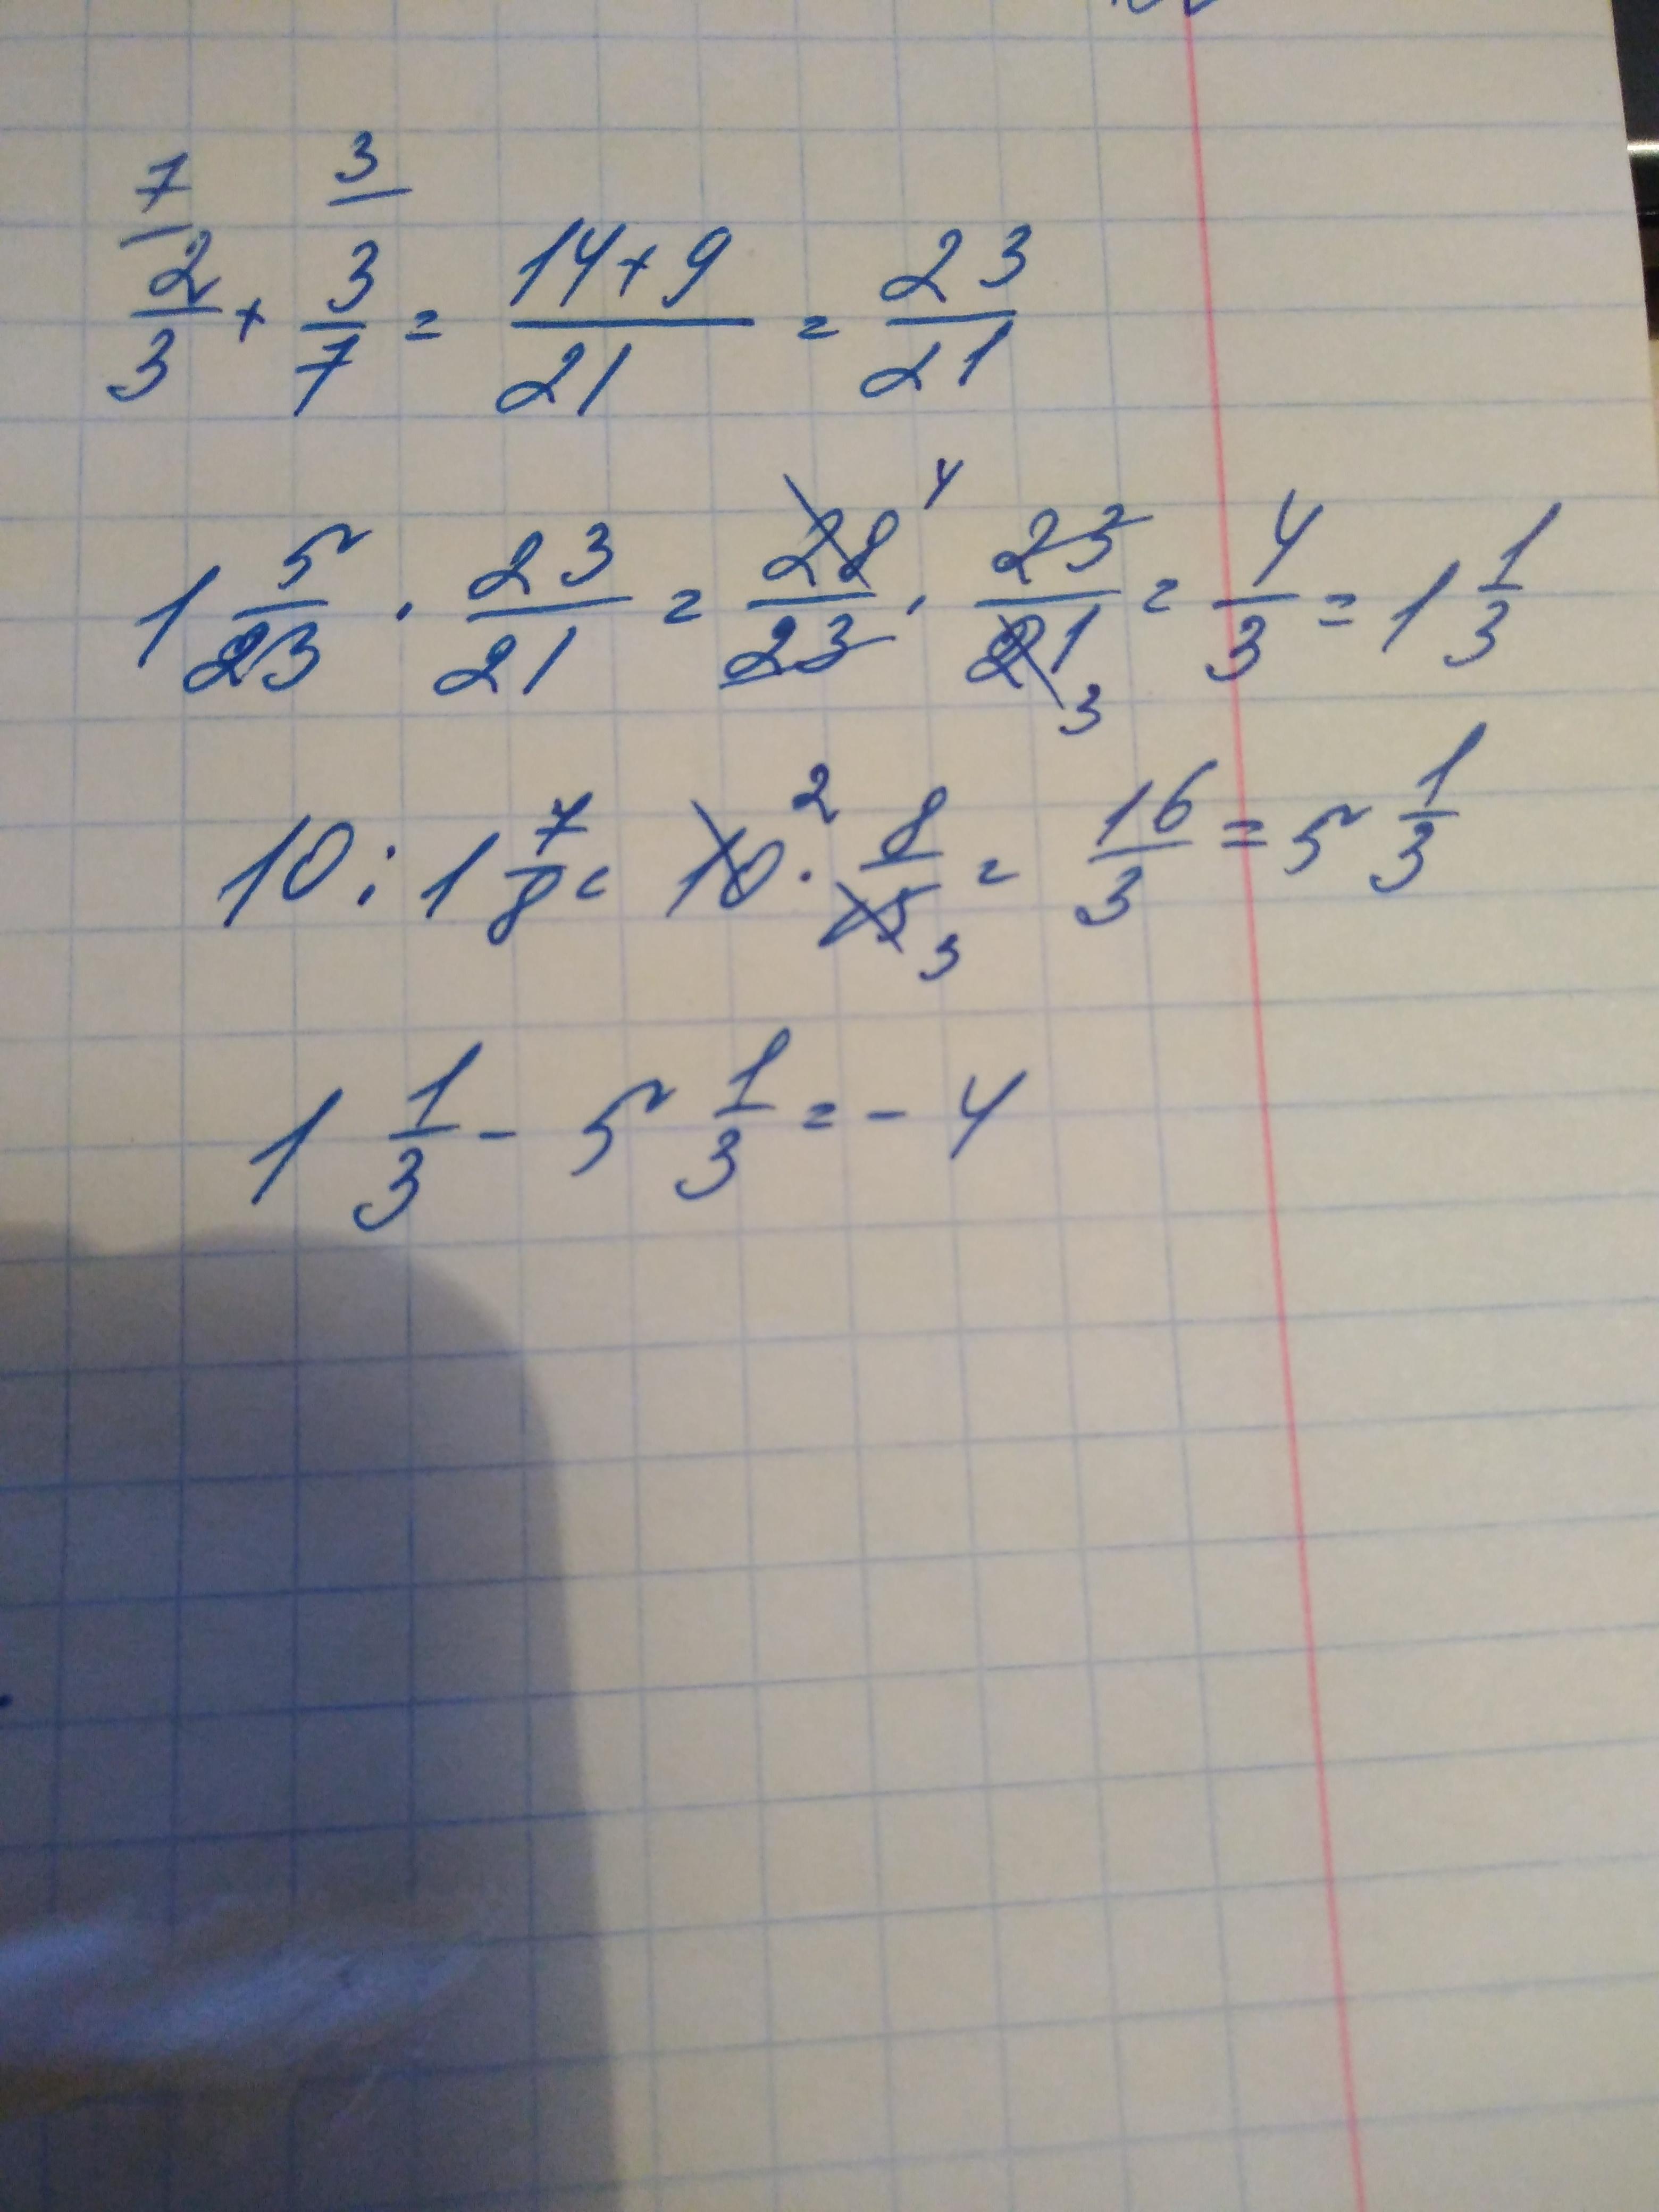 7/ 3/
2/3 + 3/7 = 14+9/21 = 23/21
1 5/23 · 23/21 = 28/23 · 23/21 = 4/3 = 1 1/3
4
3
10 : 1 7/8 = 10 · 8/15 = 16/3 = 5 1/3
2
3
1 1/3 - 5 1/3 = - 4